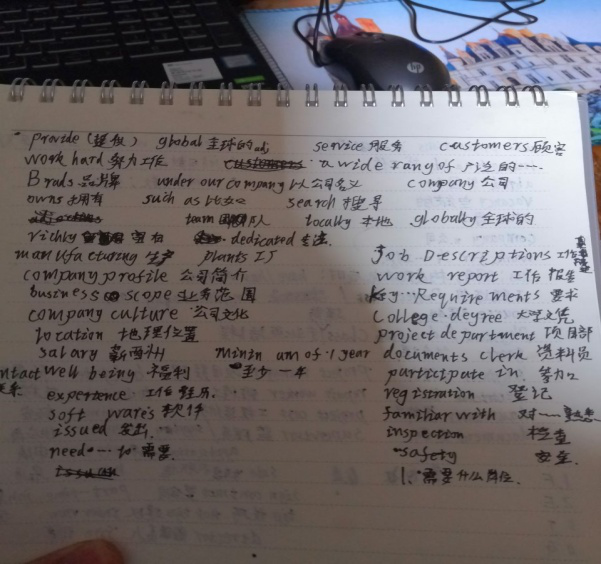 provide (提供) global 全球的adj service 服务 customers 顾客
work hard 努力工作 a wide rany of 广泛的....
Brads 品牌 under our company 以公司名义 company 公司
owns 拥有 such as 比如 search 搜寻
team 团队 locally 本地 globally 全球的
richly dedicated
manufacturing 生产 plants Job Descriptions 工作
company profile 公司简介 work report 工作报告
business scope 业务范围 Key Requirements 要求
company culture 公司文化 College degree 大学文凭
location 地理位置 project department 项目部
salary 薪酬 minimum of 1 year documents clerk 资料员
well being 福利 至少一年 participate in 参加
experience 工作经历 registration 登记
soft ware's 软件 familiar with 对
issued 发出 inspection 检查
need .... to 需要 safety 安全
1. 需要什么岗位